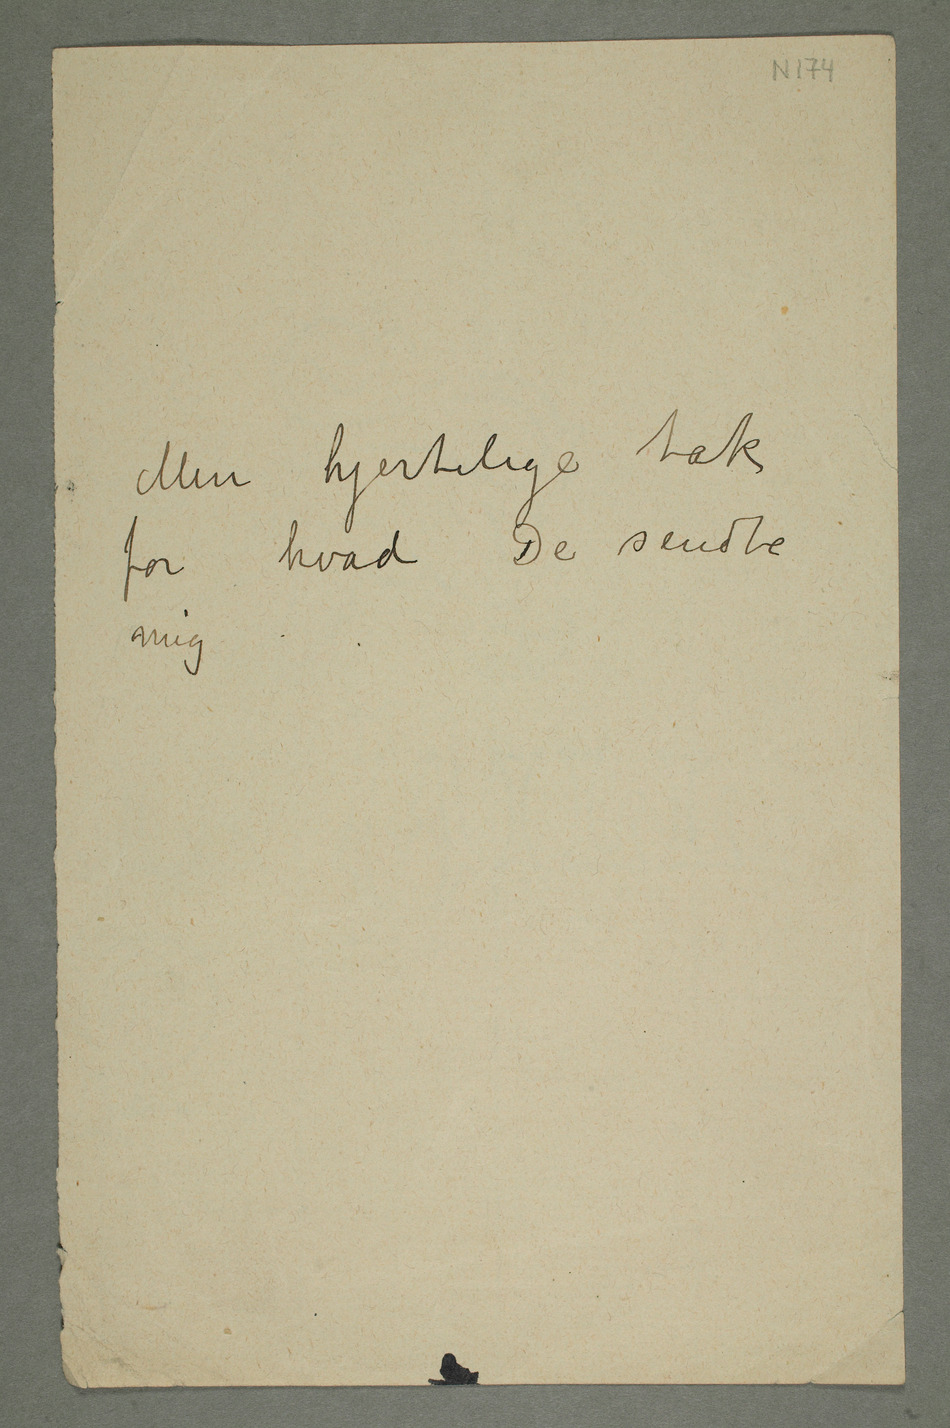 N 174
Min hjertelige tak
for hvad De sendte
mig